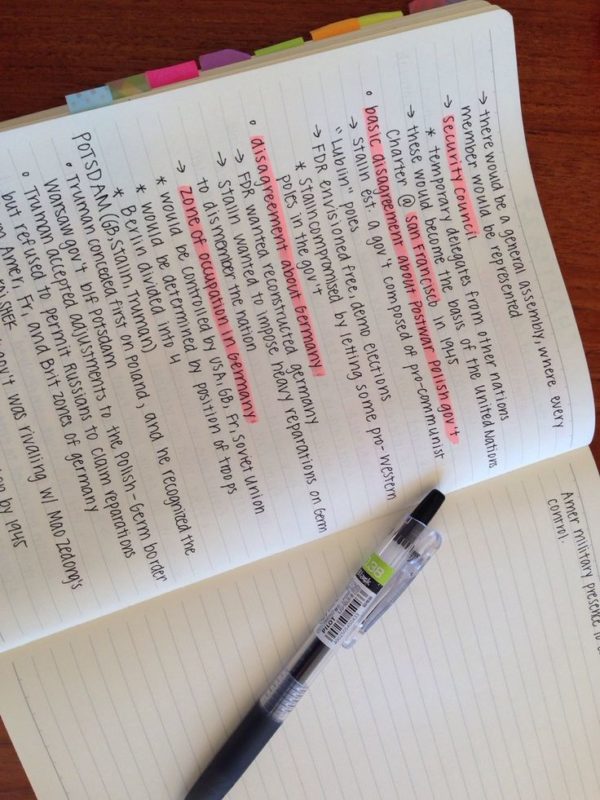 → there would be a general assembly, where every
member would be represented
→ security council
* temporary delegates from other nations
→ these would become the basis of the United Nations
Charter @ San Francisco in 1945
• basic disagreement about Postwar Polish gov't
→ Stalin est. a gov't composed of pro-communist
"Lublin" poles
→ FDR envisioned free, demo elections
* Stalin compromised by letting some pro-western
poles in the gov't
• disagreement about Germany
→ FDR wanted reconstructed germany
→ Stalin wanted to impose heavy reparations on Germ
to dismember the nation
→ zone of occupation in Germany
* would be controlled by USA, GB, Fr, Soviet union
* would be determined by position of troops
* Berlin divided into 4
POTSDAM (GB, Stalin, Truman)
• Truman conceded first on Poland, and he recognized the
Warsaw gov't b/f Potsdam
• Truman accepted adjustments to the Polish-Germ border
but refused to permit Russians to claim reparations
Amer, Fr, and Brit zones of germany
SHEK
gov't was rivaling w/ Mao Zedong's
by 1945
Amer military presence to
control.
.38
Black
PILOT